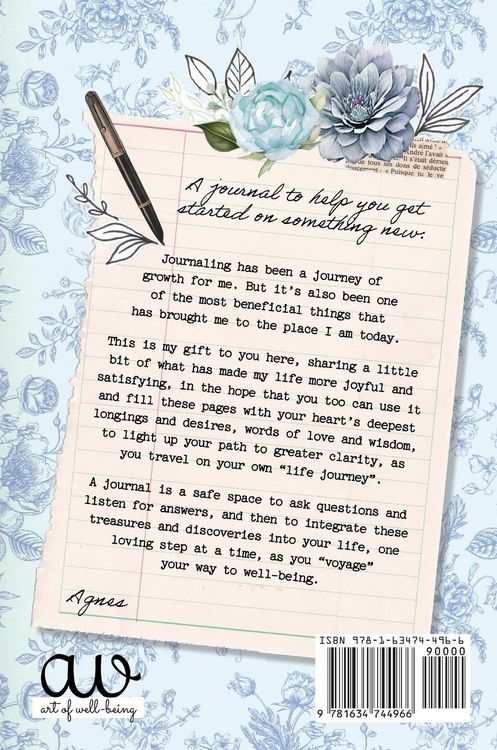 is aimé ! »
André l'avait
Il était démen
tous ses dons de séductir
« Puisque tu le ve
A journal to help you get
started on something new.
Journaling has been a journey of
growth for me. But it's also been one
of the most beneficial things that
has brought me to the place I am today.
This is my gift to you here, sharing a little
bit of what has made my life more joyful and
satisfying, in the hope that you too can use it
and fill these pages with your heart's deepest
longings and desires, words of love and wisdom,
to light up your path to greater clarity, as
you travel on your own "life journey".
A journal is a safe space to ask questions and
listen for answers, and then to integrate these
treasures and discoveries into your life, one
loving step at a time, as you "voyage"
your way to well-being.
Agnes
aw
art of well-being
ISBN 978-1-63474-496-6
90000
9 781634 744966